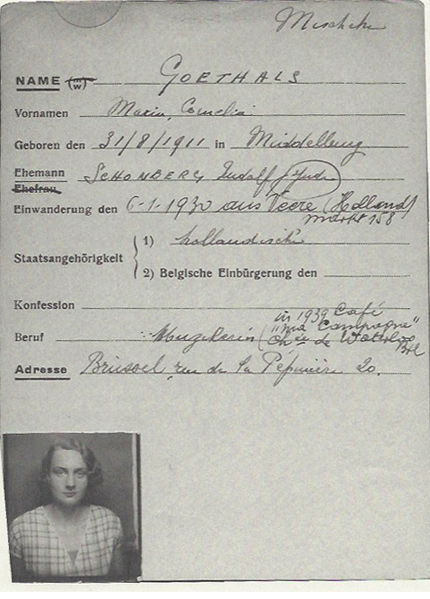 Mischehe
NAME (m/w) GOETHALS
Vornamen Maria, Cornelia
Geboren den 31/8/1911 in Middelburg
Ehemann
Ehefrau SCHONBERG Rudolf Jude
Einwanderung den 6-1-1930 aus Veere (Holland)
markt 158
Staatsangehörigkeit { 1) holländische
2) Belgische Einbürgerung den
Konfession
in 1939 Café
"ma Campagne"
Beruf (chée de Waterloo
Bxl
Adresse Brüssel, rue de la Pépinière 20.